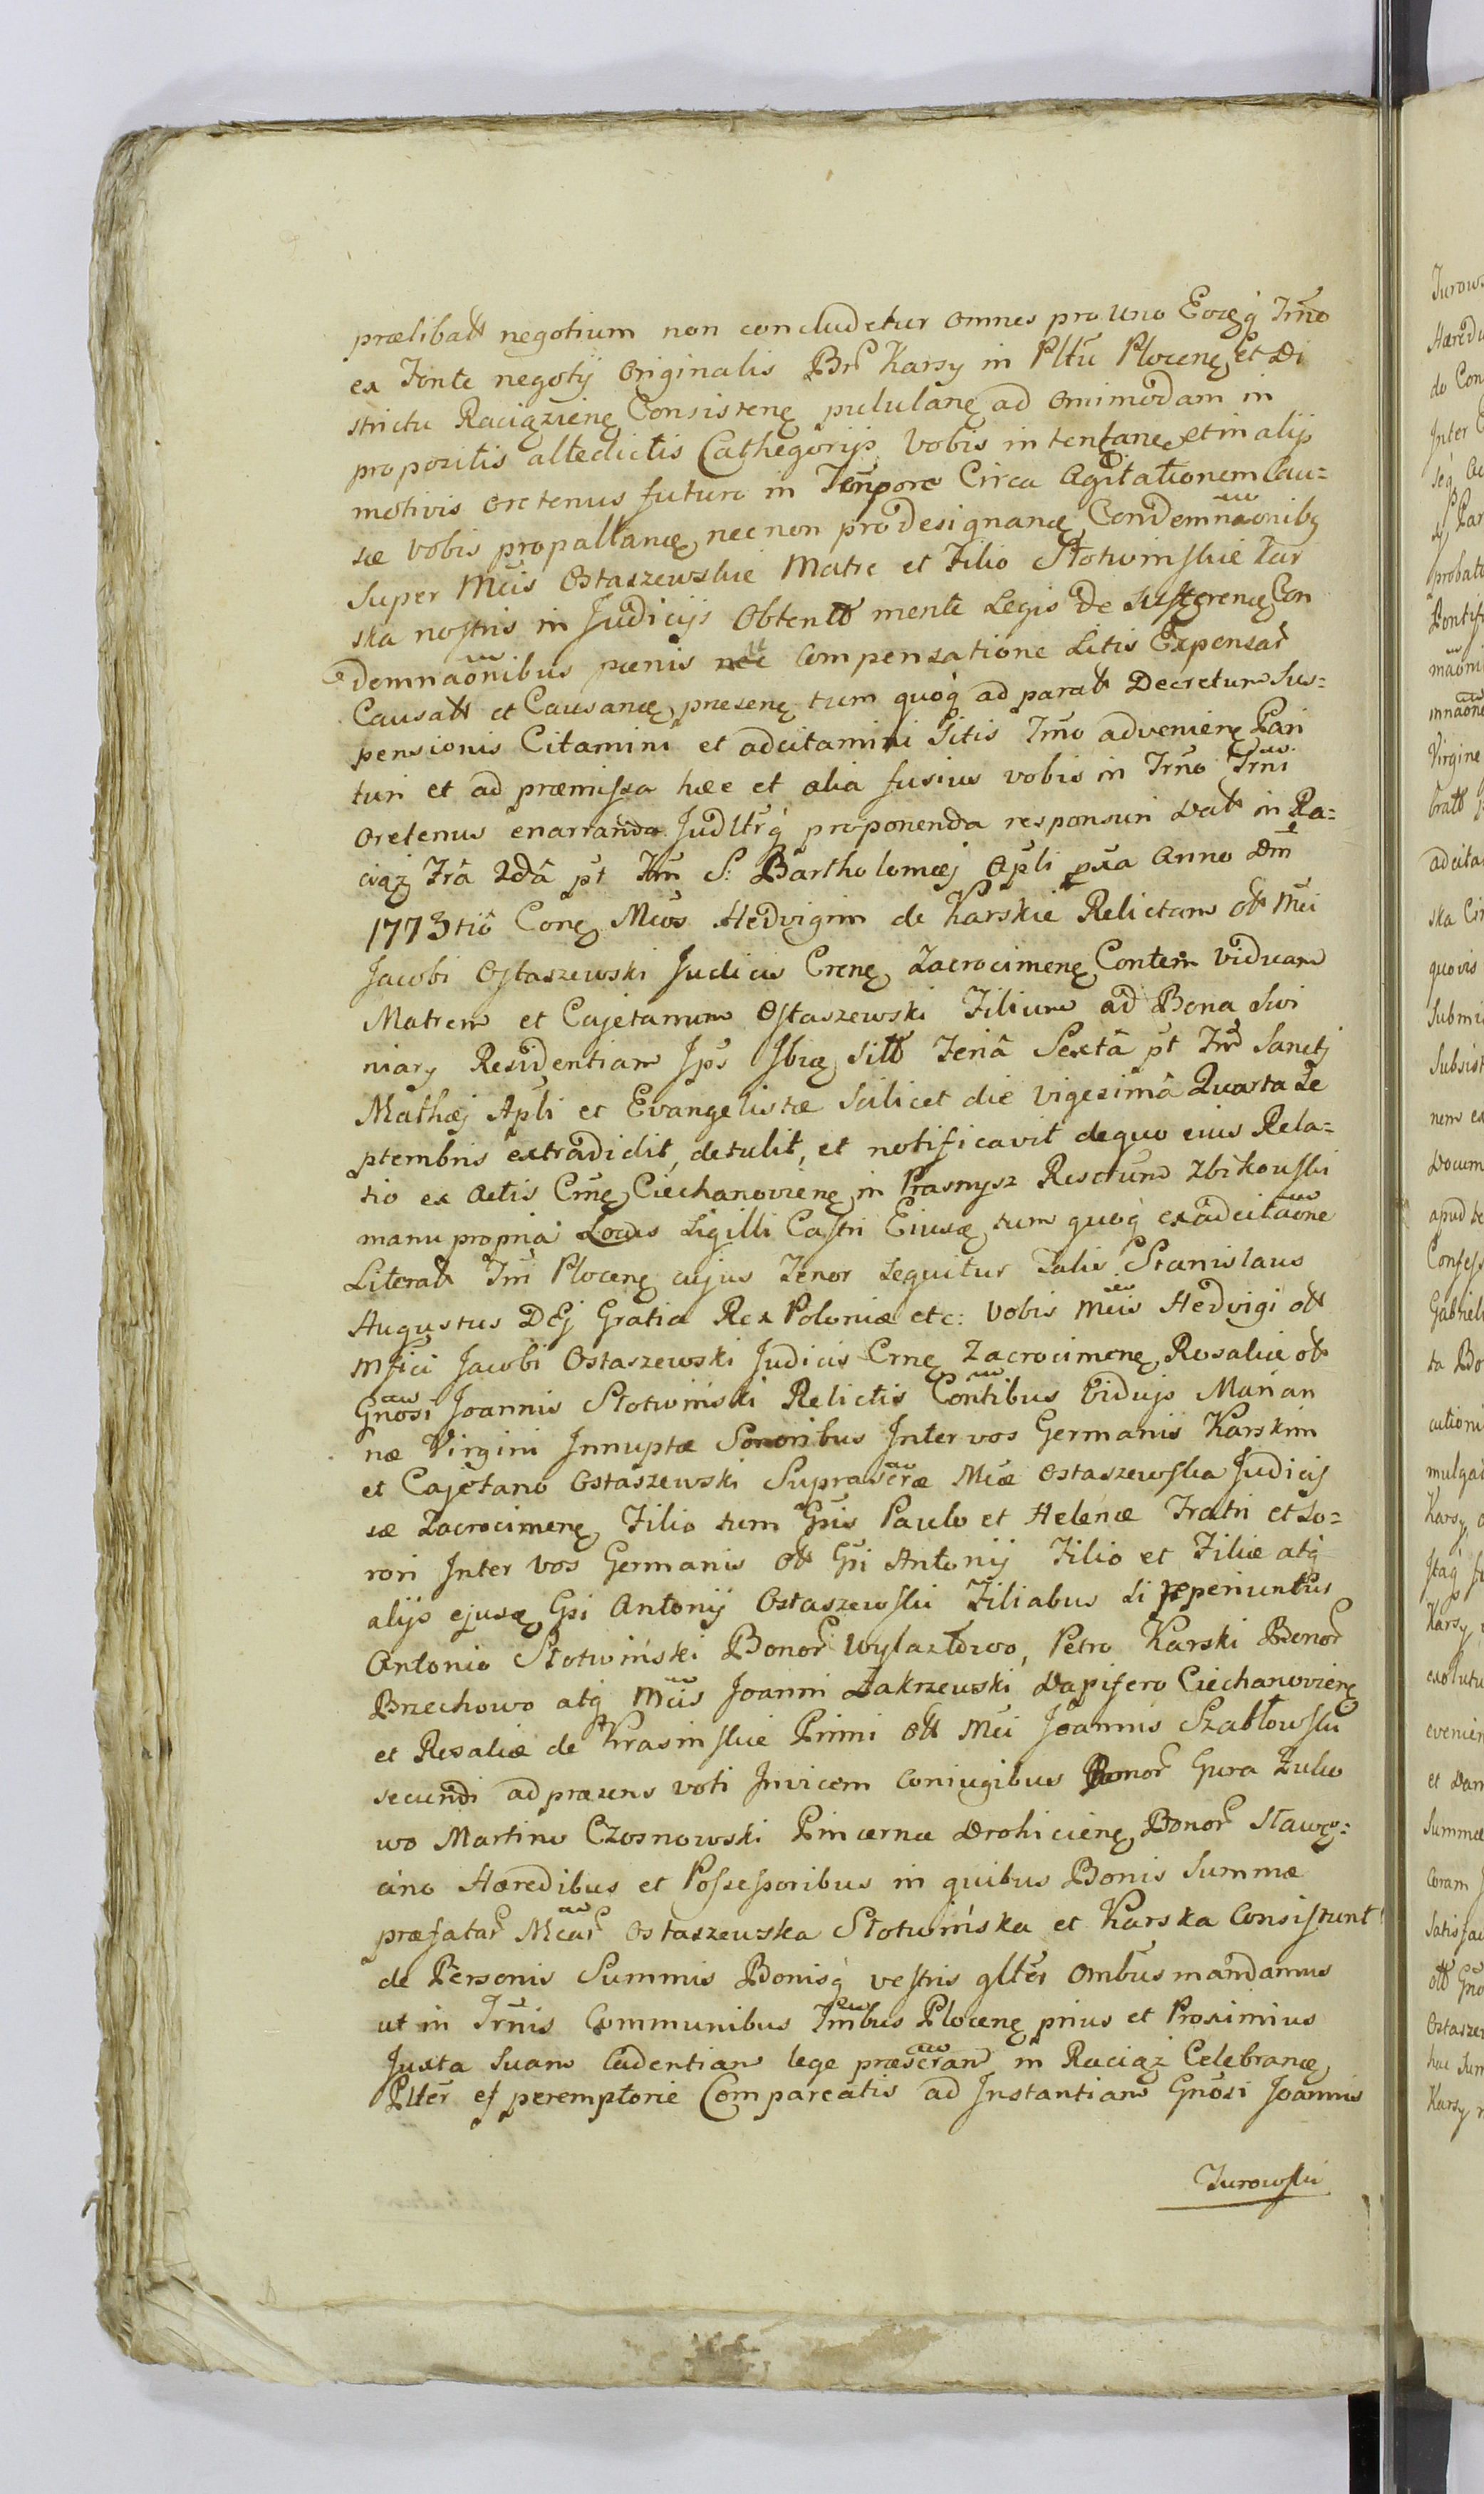 prælibatt negotium non concludetur omnes pro uno Eoq̃ Trno
ex Fonte negotij Originalis Brr Karsy in Pltũ Plocen̨ et Di
strictu Raciązien̨ Consisten̨ pululan̨ ad omimodam in
propozitis altedictis Cathegorijs Vobis intentan̨ et in alijs
motivis oretenus futuro in Tempore Circa Agitationem Cau=
sæ vobis propallanæ, nec non pro designan̨ Condemnãonibg
Super Mcis Ostaszewskie Matre et Filio Słotwinskie Kar
ska nostris in Judicijs Obtentt mente Legis de sufferen̨ Con
demnãonibus pœnis nec compensatione Litis Expensar
Causatt et Causan̨ presen̨ tum quoq́ ad paratt Decretum Sus=
pensionis Citamini et adcitamini Sitis Trno advenien̨ Pari
turi et ad præmissa hæc et alia fusius vobis in Trno Trni
oretenus enarranda Judltrq́ proponenda responsuri Datt in Ra=
ciąż Frâ 2dâ pt Ftm S: Bartholomæj Apli pxa Anno Dni
1773tiô Con̨ Mcos Hedvigim de Karskie Relictam ott Mci
Jacobi Ostaszewski Judicis Cren̨ Zacrocimen̨ Contem viduam
Matrem et Cajetanum Ostaszewski Filium ad Bona Swi
niary Residentiam Jps Ibiq̨ sitt Feriâ Sextâ pt Ftm Sancti
Mathæj Apli et Evangelistæ Scilicet die Vigesimâ Quarta Se
ptembris extradidit, detulit, et notificavit de quo eius Rela=
tio ex Actis Crnę Ciechanovien̨ in Prasnysz Resctum Zbikowski
manu propriâ Locus Sigilli Castri Eiusq̨ tum quoq́ ex adcitãone
Literatt Trni Plocen̨ cujus Tenor Sequitur Talis Stanislaus
Augustus DEj Gratia Rex Poloniæ etc: Vobis Mcis Hedvigi ott
Mfici Jacobi Ostaszewski Judicis Crnę Zacrocimen̨ Rosaliæ ott
Gnosi Joannis Słotwiński Relictis Contibus Vidujs Marian
næ Virgini Innuptæ Sororibus Inter vos Germanis Karskim
et Cajetano Ostaszewski Suprascræ Mcæ Ostaszewska Judicis
sæ Zacrocimen̨ Filio tum Gsis Paulo et Helenæ Fratri et So=
rori Inter vos Germanis ott Gsi Antonij Filio et Filiæ atq́
alijs ejusq̨ Gsi Antonij Ostaszewski Filiabus si reperiuntur
Antonio Słotwiński Bonor Wylazłowo, Petro Karski Bonor
Brzechowo atq́ Mcis Joanni Zakrzewski Dapifero Ciechanovien̨
et Rosaliæ de Krasinskie Primi ott Mci Joannis Szabłowski
secundi ad præsens voti Invicem coniugibus Bonor Gura Zulko
wo Martino Czosnowski Pincernæ Drohicien̨ Bonor Sławę=
cino Hæredibus et Possessoribus in quibus Bonis Summæ
præfatar Mcar Ostaszewska Słotwińska et Karska Consistunt
de Personis Summis Bonisq́ vestris glter ombus mandamus
ut in Trnis Communibus Trribus Plocen̨ prius et Proximius
Juxta Suam Cadentiam lege præscram in Raciąż Celebran̨
Plter et peremptorie Compareatis ad Instantiam Gnosi Joannis
Turowski